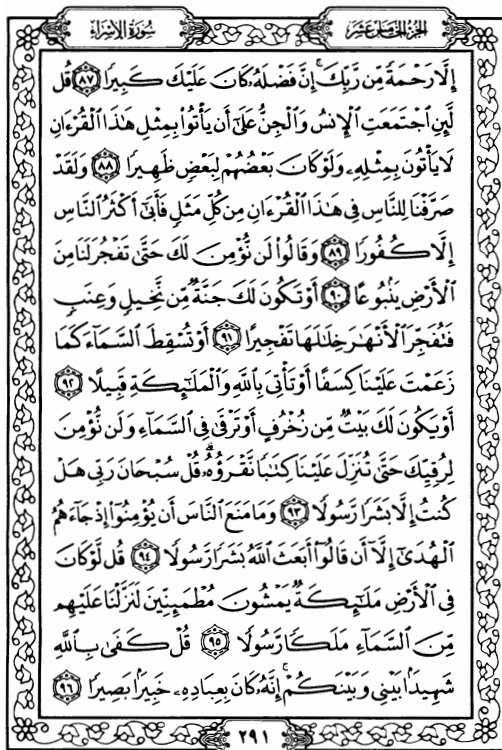 سُورَةُ الإِسْرَاءِ الجُزْءُ الخَامِسَ عَشَرَ
إِلَّا رَحْمَةً مِّن رَّبِّكَ ۚ إِنَّ فَضْلَهُۥ كَانَ عَلَيْكَ كَبِيرًا ٨٧ قُل
لَّئِنِ ٱجْتَمَعَتِ ٱلْإِنسُ وَٱلْجِنُّ عَلَىٰٓ أَن يَأْتُوا۟ بِمِثْلِ هَـٰذَا ٱلْقُرْءَانِ
لَا يَأْتُونَ بِمِثْلِهِۦ وَلَوْ كَانَ بَعْضُهُمْ لِبَعْضٍ ظَهِيرًا ٨٨ وَلَقَدْ
صَرَّفْنَا لِلنَّاسِ فِى هَـٰذَا ٱلْقُرْءَانِ مِن كُلِّ مَثَلٍ فَأَبَىٰٓ أَكْثَرُ ٱلنَّاسِ
إِلَّا كُفُورًا ٨٩ وَقَالُوا۟ لَن نُّؤْمِنَ لَكَ حَتَّىٰ تَفْجُرَ لَنَا مِنَ
ٱلْأَرْضِ يَنۢبُوعًا ٩٠ أَوْ تَكُونَ لَكَ جَنَّةٌ مِّن نَّخِيلٍ وَعِنَبٍ
فَتُفَجِّرَ ٱلْأَنْهَـٰرَ خِلَـٰلَهَا تَفْجِيرًا ٩١ أَوْ تُسْقِطَ ٱلسَّمَآءَ كَمَا
زَعَمْتَ عَلَيْنَا كِسَفًا أَوْ تَأْتِىَ بِٱللَّهِ وَٱلْمَلَـٰٓئِكَةِ قَبِيلًا ٩٢
أَوْ يَكُونَ لَكَ بَيْتٌ مِّن زُخْرُفٍ أَوْ تَرْقَىٰ فِى ٱلسَّمَآءِ وَلَن نُّؤْمِنَ
لِرُقِيِّكَ حَتَّىٰ تُنَزِّلَ عَلَيْنَا كِتَـٰبًا نَّقْرَؤُهُۥ ۗ قُلْ سُبْحَانَ رَبِّى هَلْ
كُنتُ إِلَّا بَشَرًا رَّسُولًا ٩٣ وَمَا مَنَعَ ٱلنَّاسَ أَن يُؤْمِنُوٓا۟ إِذْ جَآءَهُمُ
ٱلْهُدَىٰٓ إِلَّآ أَن قَالُوٓا۟ أَبَعَثَ ٱللَّهُ بَشَرًا رَّسُولًا ٩٤ قُل لَّوْ كَانَ
فِى ٱلْأَرْضِ مَلَـٰٓئِكَةٌ يَمْشُونَ مُطْمَئِنِّينَ لَنَزَّلْنَا عَلَيْهِم
مِّنَ ٱلسَّمَآءِ مَلَكًا رَّسُولًا ٩٥ قُلْ كَفَىٰ بِٱللَّهِ
شَهِيدًۢا بَيْنِى وَبَيْنَكُمْ ۚ إِنَّهُۥ كَانَ بِعِبَادِهِۦ خَبِيرًۢا بَصِيرًا ٩٦
٢٩١